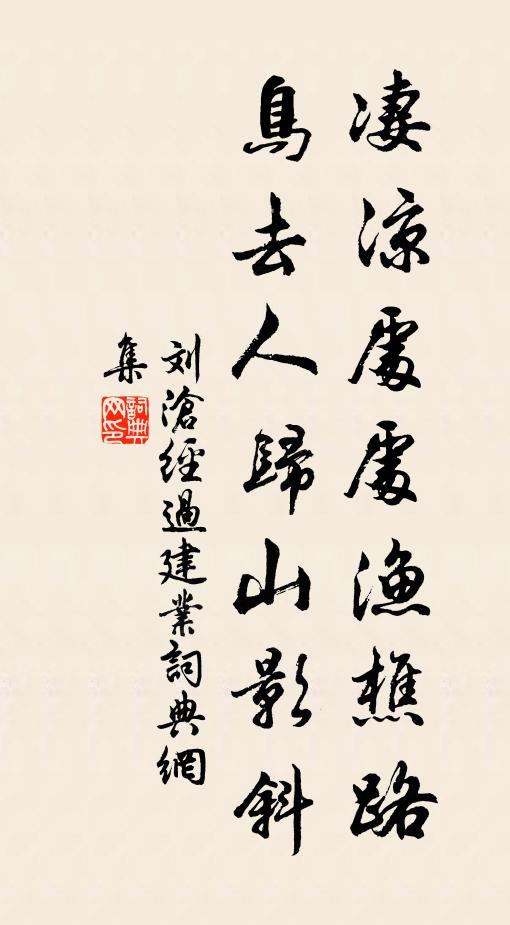 凄凉處處漁樵路
鳥去人歸山影斜
刘滄經過建業詞典網
集
詞典
网印